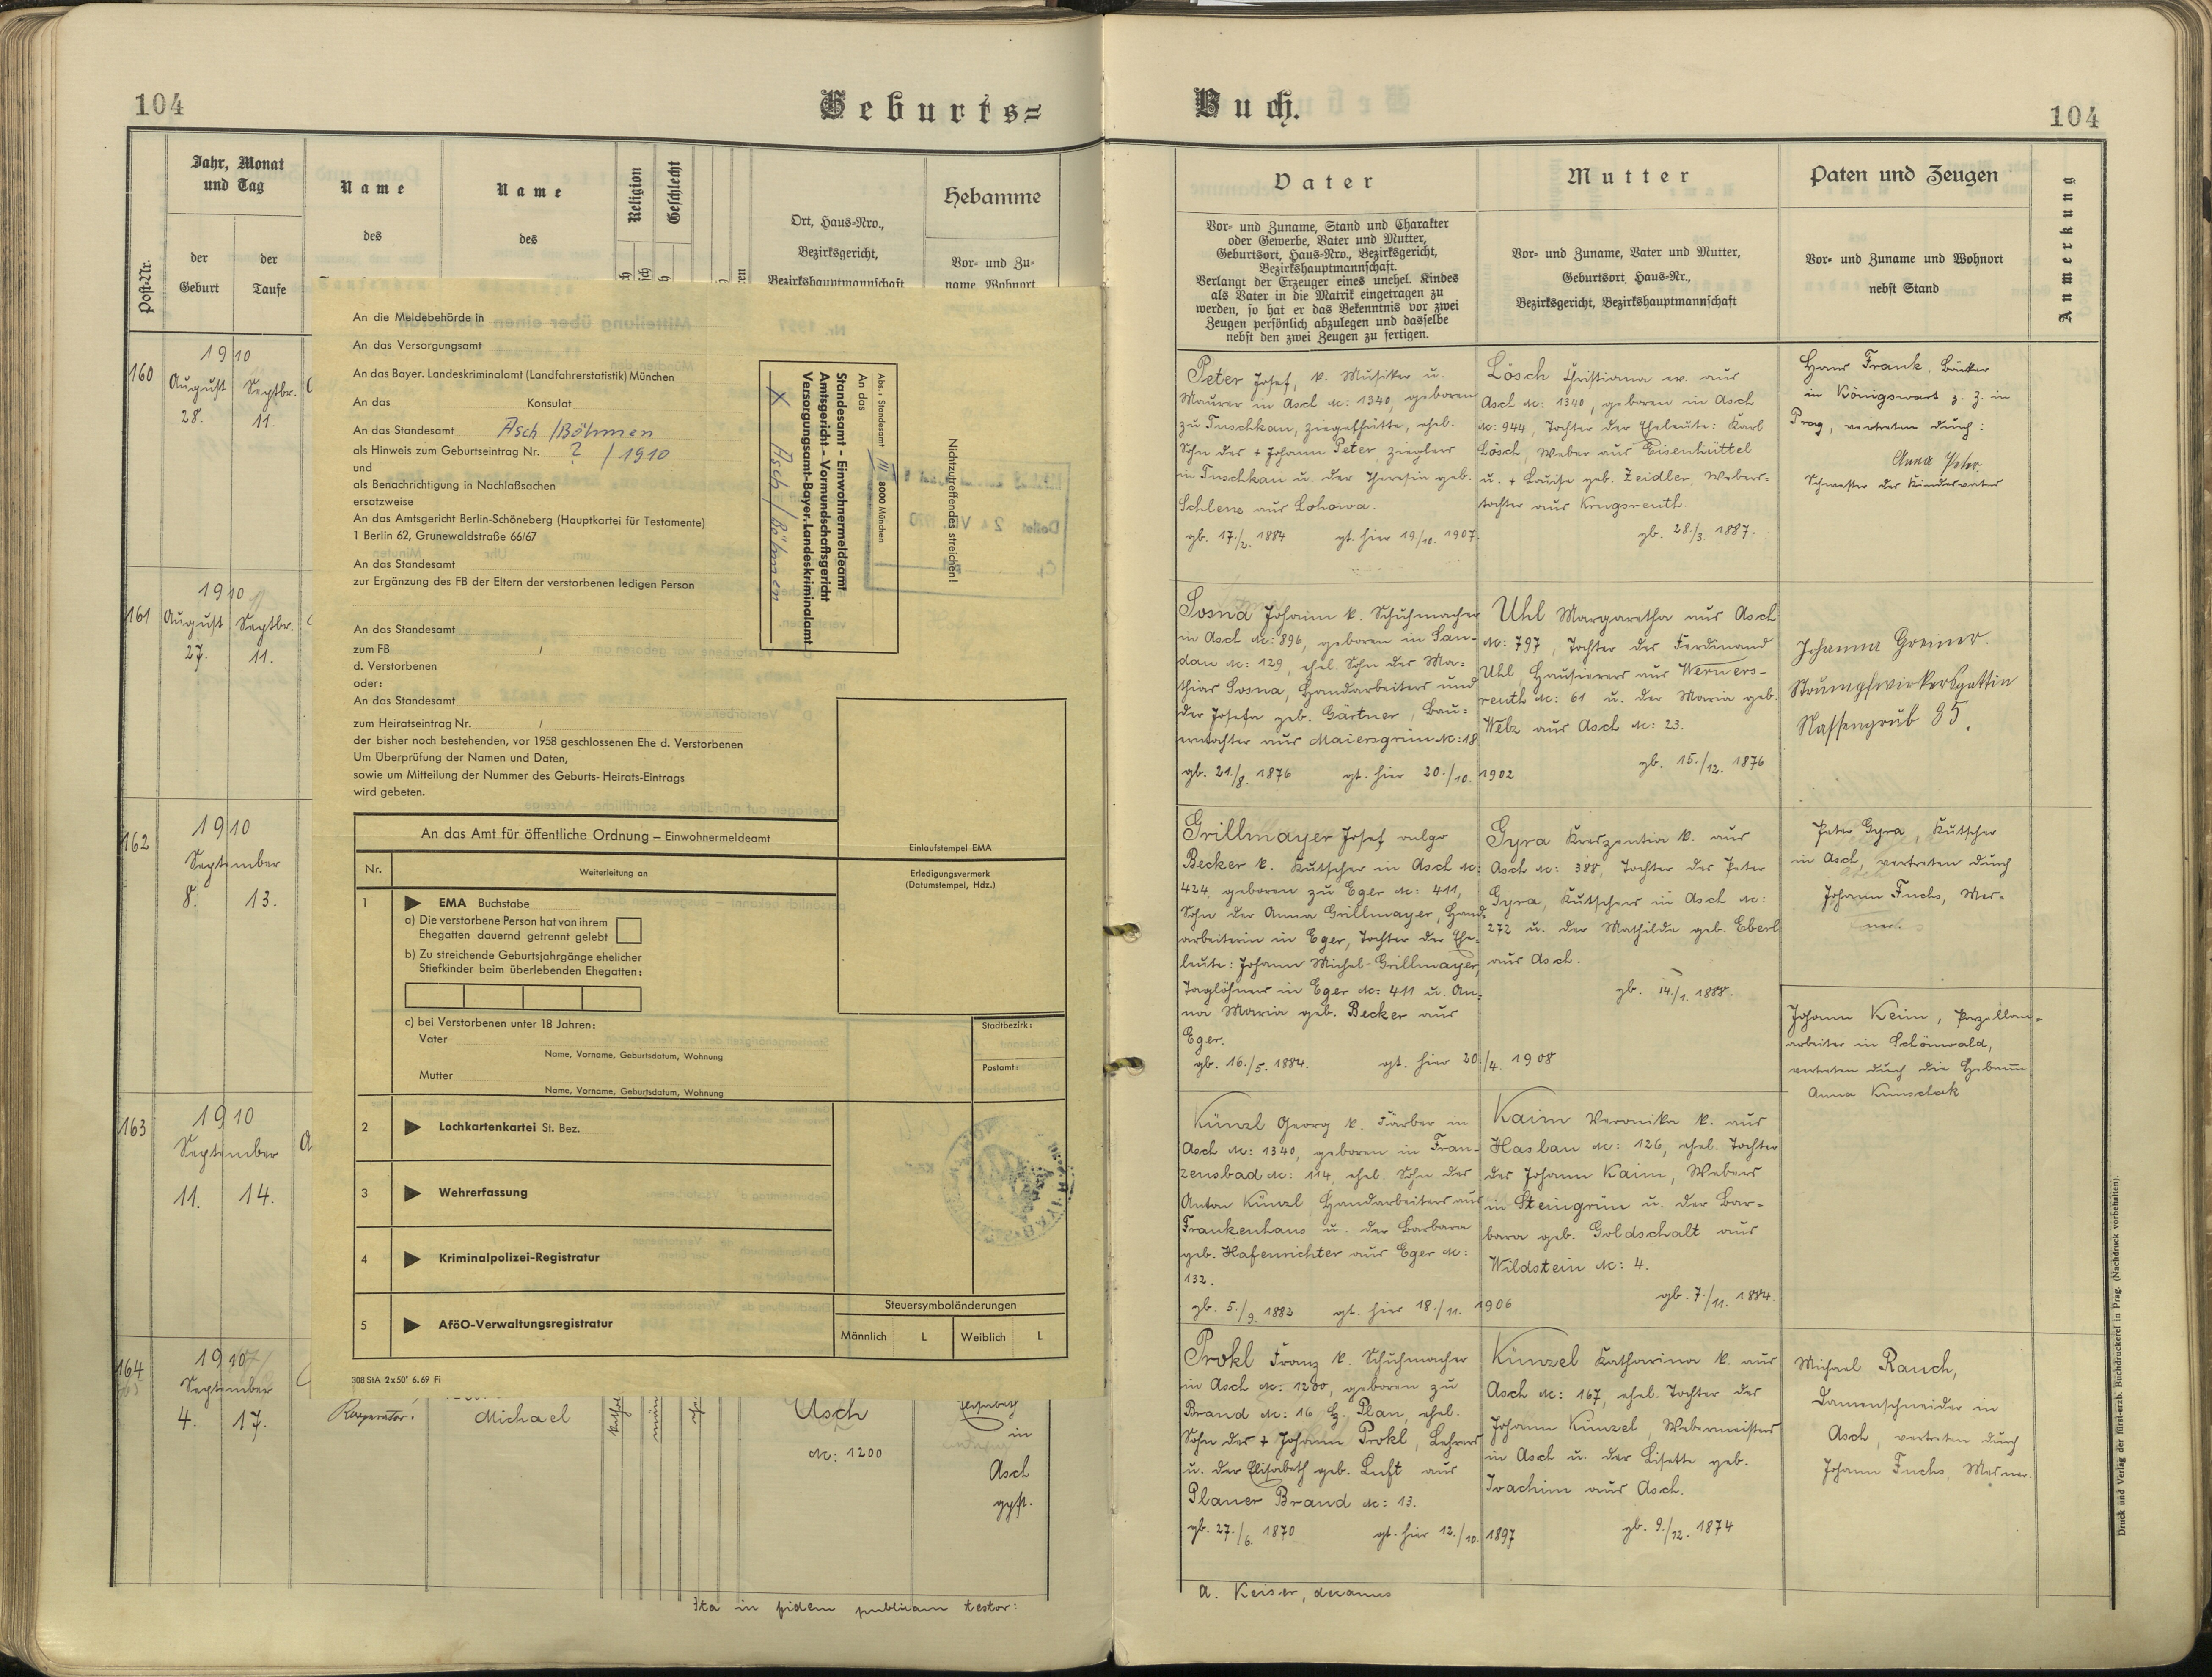 104
Geburts=
Jahr, Monat
und Tag
Name
Name
Religion
Geschlecht
Hebamme
Ort, Haus=Nro.,
des
des
Bezirksgericht,
Post=Nr.
der
der
Vor= und Zu=
Geburt
Taufe
Bezirkshauptmannschaft
name Wohnort
1910
160
August
Septbr.
28.
11.
1910
161
August
Septbr.
27.
11.
1910
162
September
8.
13.
1910
163
September
11.
14.
1910
164
September
4.
17.
Michael
Asch
№: 1200
in
Asch
gpft.
Ita in fidem publicam testor:
An die Meldebehörde in
An das Versorgungsamt
An das Bayer. Landeskriminalamt (Landfahrerstatistik) München
An das Konsulat
An das Standesamt Asch / Böhmen
als Hinweis zum Geburtseintrag Nr. ? / 1910
und
als Benachrichtigung in Nachlaßsachen
ersatzweise
An das Amtsgericht Berlin-Schöneberg (Hauptkartei für Testamente)
1 Berlin 62, Grunewaldstraße 66/67
An das Standesamt
zur Ergänzung des FB der Eltern der verstorbenen ledigen Person
An das Standesamt
zum FB /
d. Verstorbenen
oder:
An das Standesamt
zum Heiratseintrag Nr. /
der bisher noch bestehenden, vor 1958 geschlossenen Ehe d. Verstorbenen
Um Überprüfung der Namen und Daten,
sowie um Mitteilung der Nummer des Geburts- Heirats-Eintrags
wird gebeten.
Nichtzutreffendes streichen!
Abs.: Standesamt III 8000 München
An das
Standesamt - Einwohnermeldeamt
Amtsgericht - Vormundschaftsgericht
Versorgungsamt-Bayer.Landeskriminalamt
X Asch / Böhmen
An das Amt für öffentliche Ordnung – Einwohnermeldeamt
Einlaufstempel EMA
Nr.
Weiterleitung an
Erledigungsvermerk
(Datumstempel, Hdz.)
1
EMA Buchstabe
a) Die verstorbene Person hat von ihrem
Ehegatten dauernd getrennt gelebt
b) Zu streichende Geburtsjahrgänge ehelicher
Stiefkinder beim überlebenden Ehegatten:
c) bei Verstorbenen unter 18 Jahren:
Vater
Name, Vorname, Geburtsdatum, Wohnung
Mutter
Name, Vorname, Geburtsdatum, Wohnung
Stadtbezirk:
Postamt:
2 Lochkartenkartei St. Bez.
3 Wehrerfassung
4 Kriminalpolizei-Registratur
5 AföO-Verwaltungsregistratur
Steuersymboländerungen
Männlich L Weiblich L
308 StA 2x50' 6.69 Fi
Buch.
104
Vater
Vor= und Zuname, Stand und Charakter
oder Gewerbe, Vater und Mutter,
Geburtsort, Haus=Nro., Bezirksgericht,
Bezirkshauptmannschaft.
Verlangt der Erzeuger eines unehel. Kindes
als Vater in die Matrik eingetragen zu
werden, so hat er das Bekenntnis vor zwei
Zeugen persönlich abzulegen und dasselbe
nebst den zwei Zeugen zu fertigen.
Mutter
Vor= und Zuname, Vater und Mutter,
Geburtsort, Haus=Nr.,
Bezirksgericht, Bezirkshauptmannschaft
Paten und Zeugen
Vor= und Zuname und Wohnort
nebst Stand
Anmerkung
Peter Josef, k. Musiker u.
Maurer in Asch №: 1340, geboren
zu Tuschkau, Ziegelhütte, ehel.
Sohn des + Johann Peter, Zieglers
in Tuschkau u. der Theresia geb.
Schlenz aus Lohowa.
gb. 17./2. 1884 gt. hier 19./10. 1907
Lösch Christiana ev. aus
Asch №: 1340, geboren in Asch
№: 944, Tochter der Eheleute: Karl
Lösch, Weber aus Eisenhüttel
u. + Louise geb. Zeidler, Weber=
tochter aus Krugsreuth.
gb. 28./3. 1887.
Hans Frank, Bäcker
in Königswart z. Z. in
Prag, vertreten durch:
Anna Peter,
Schwester des Kindesvaters
Sosna Johann k. Schuhmacher
in Asch №: 896, geboren in San=
dau №: 129, ehel. Sohn des Ma=
thias Sosna, Handarbeiters und
der Josefa geb. Gärtner, Bau=
erntochter aus Maiersgrün №: 18.
gb. 21./8. 1876 gt. hier 20./10. 1902
Uhl Margaretha aus Asch
№: 797, Tochter des Ferdinand
Uhl, Hausierers aus Werners=
reuth №: 61 u. der Maria geb.
Welz aus Asch №: 23.
gb. 15./12. 1876
Johanna Greiner.
Strumpfwirkersgattin
Nassengrub 85.
Grillmayer Josef vulgo
Becker k. Kutscher in Asch №:
424, geboren zu Eger №: 411,
Sohn der Anna Grillmayer, Hand=
arbeiterin in Eger, Tochter der Ehe=
leute: Johann Michel Grillmayer,
Taglöhners in Eger №: 411 u. An=
na Maria geb. Becker aus
Eger.
gb. 16./5. 1884. gt. hier 20./4. 1908
Gyra Kreszentia k. aus
Asch №: 388, Tochter des Peter
Gyra, Kutschers in Asch №:
272 u. der Mathilde geb. Eberl
aus Asch.
gb. 14./1. 1888.
Peter Gyra, Kutscher
in Asch, vertreten durch
Johann Fuchs, Mes=
ner.
Johann Keim, Porzellan=
arbeiter in Schönwald,
vertreten durch die Hebamme
Anna Künzel Georg k. Färber in
Asch №: 1340, geboren in Fran=
zensbad №: 114, ehel. Sohn des
Anton Künzl, Handarbeiters aus
Frankenhaus u. der Barbara
geb. Hafenrichter aus Eger №:
132.
gb. 5./9. 1883 gt. hier 18./11. 1906
Kaim Veronika k. aus
Haslau №: 126, ehel. Tochter
des Johann Kaim, Webers
in Steingrün u. der Bar=
bara geb. Goldschalt aus
Wildstein №: 4.
gb. 7./11. 1884.
Prokl Franz k. Schuhmacher
in Asch №: 1200, geboren zu
Brand №: 16 Bz. Plan, ehel.
Sohn des + Johann Prokl, Lehrers
u. der Elisabeth geb. Luft aus
Planer Brand №: 13.
gb. 27./6. 1870 gt. hier 12./10. 1897
Künzel Katharina k. aus
Asch №: 167, ehel. Tochter des
Johann Künzel, Webermeisters
in Asch u. der Lisette geb.
Joachim aus Asch.
gb. 9./12. 1874
Michael Rauch,
Damenschneider in
Asch, vertreten durch
Johann Fuchs, Mesner.
a. Keisler, decanus
Druck und Verlag der fürst-erzb. Buchdruckerei in Prag. (Nachdruck vorbehalten).